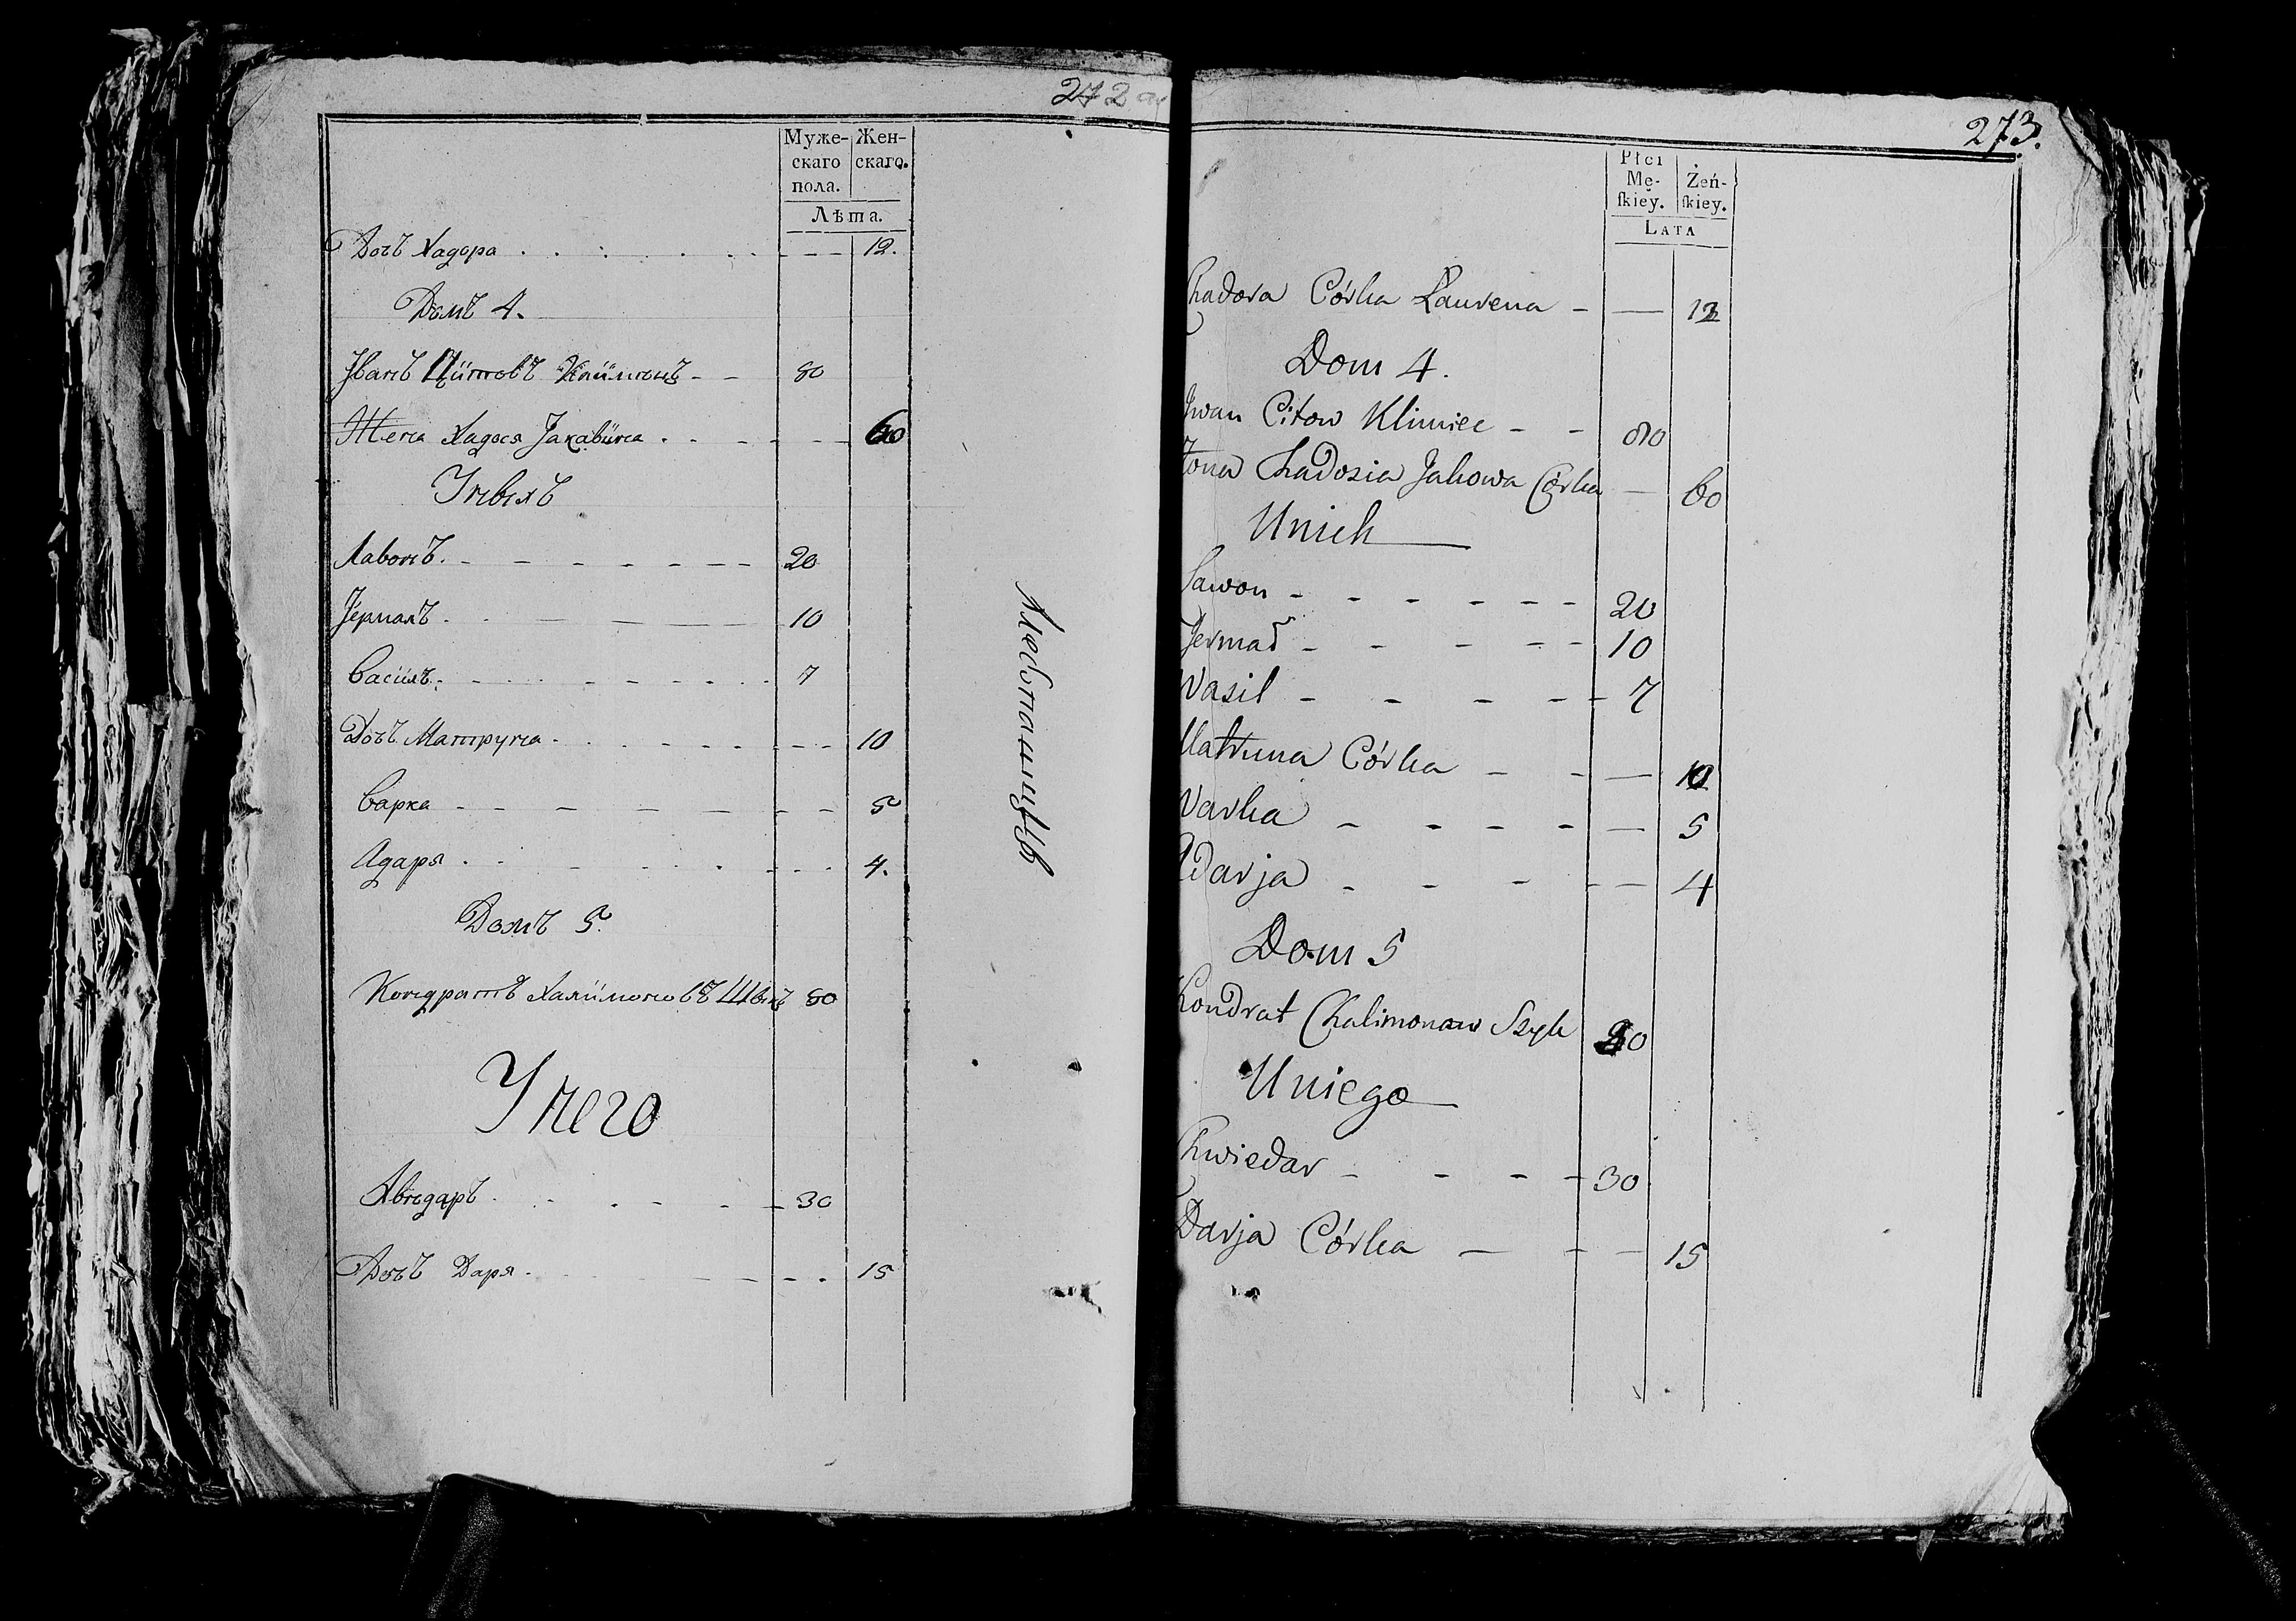 272
Муже-
скаго
пола.
Жен-
скаго.
Лѣта.
Дочъ Хадора 12.
Домъ 4.
Іванъ Цїтовъ 80
Жена Хадося Јакавїна 60
Унѣхъ
Лавонъ 20
Јермалъ 10
Васїлъ 7
Дочъ Матруна 10
Варка 5
Адаря 4.
Домъ 5.
Кондратъ Халїмоновъ Шыкъ 80
Унего
Хвѣдаръ 30
Дочъ Даря 15
273.
Płci
Mę-
ſkiey.
Żeń-
ſkiey.
LATA
Chadora Córka Łaurena 12
Dom 4.
Jwan Citow Klimiec 80
Żona Chadosia Jakowa Córka 60
Unich
Ławon 20
Jermał 10
Wasil 7
Matruna Córka 10
Warka 5
Adarja 4
Dom 5
Kondrat Chalimonaw Szyk 80
Uniego
Chwiedar 30
Darja Córka 15